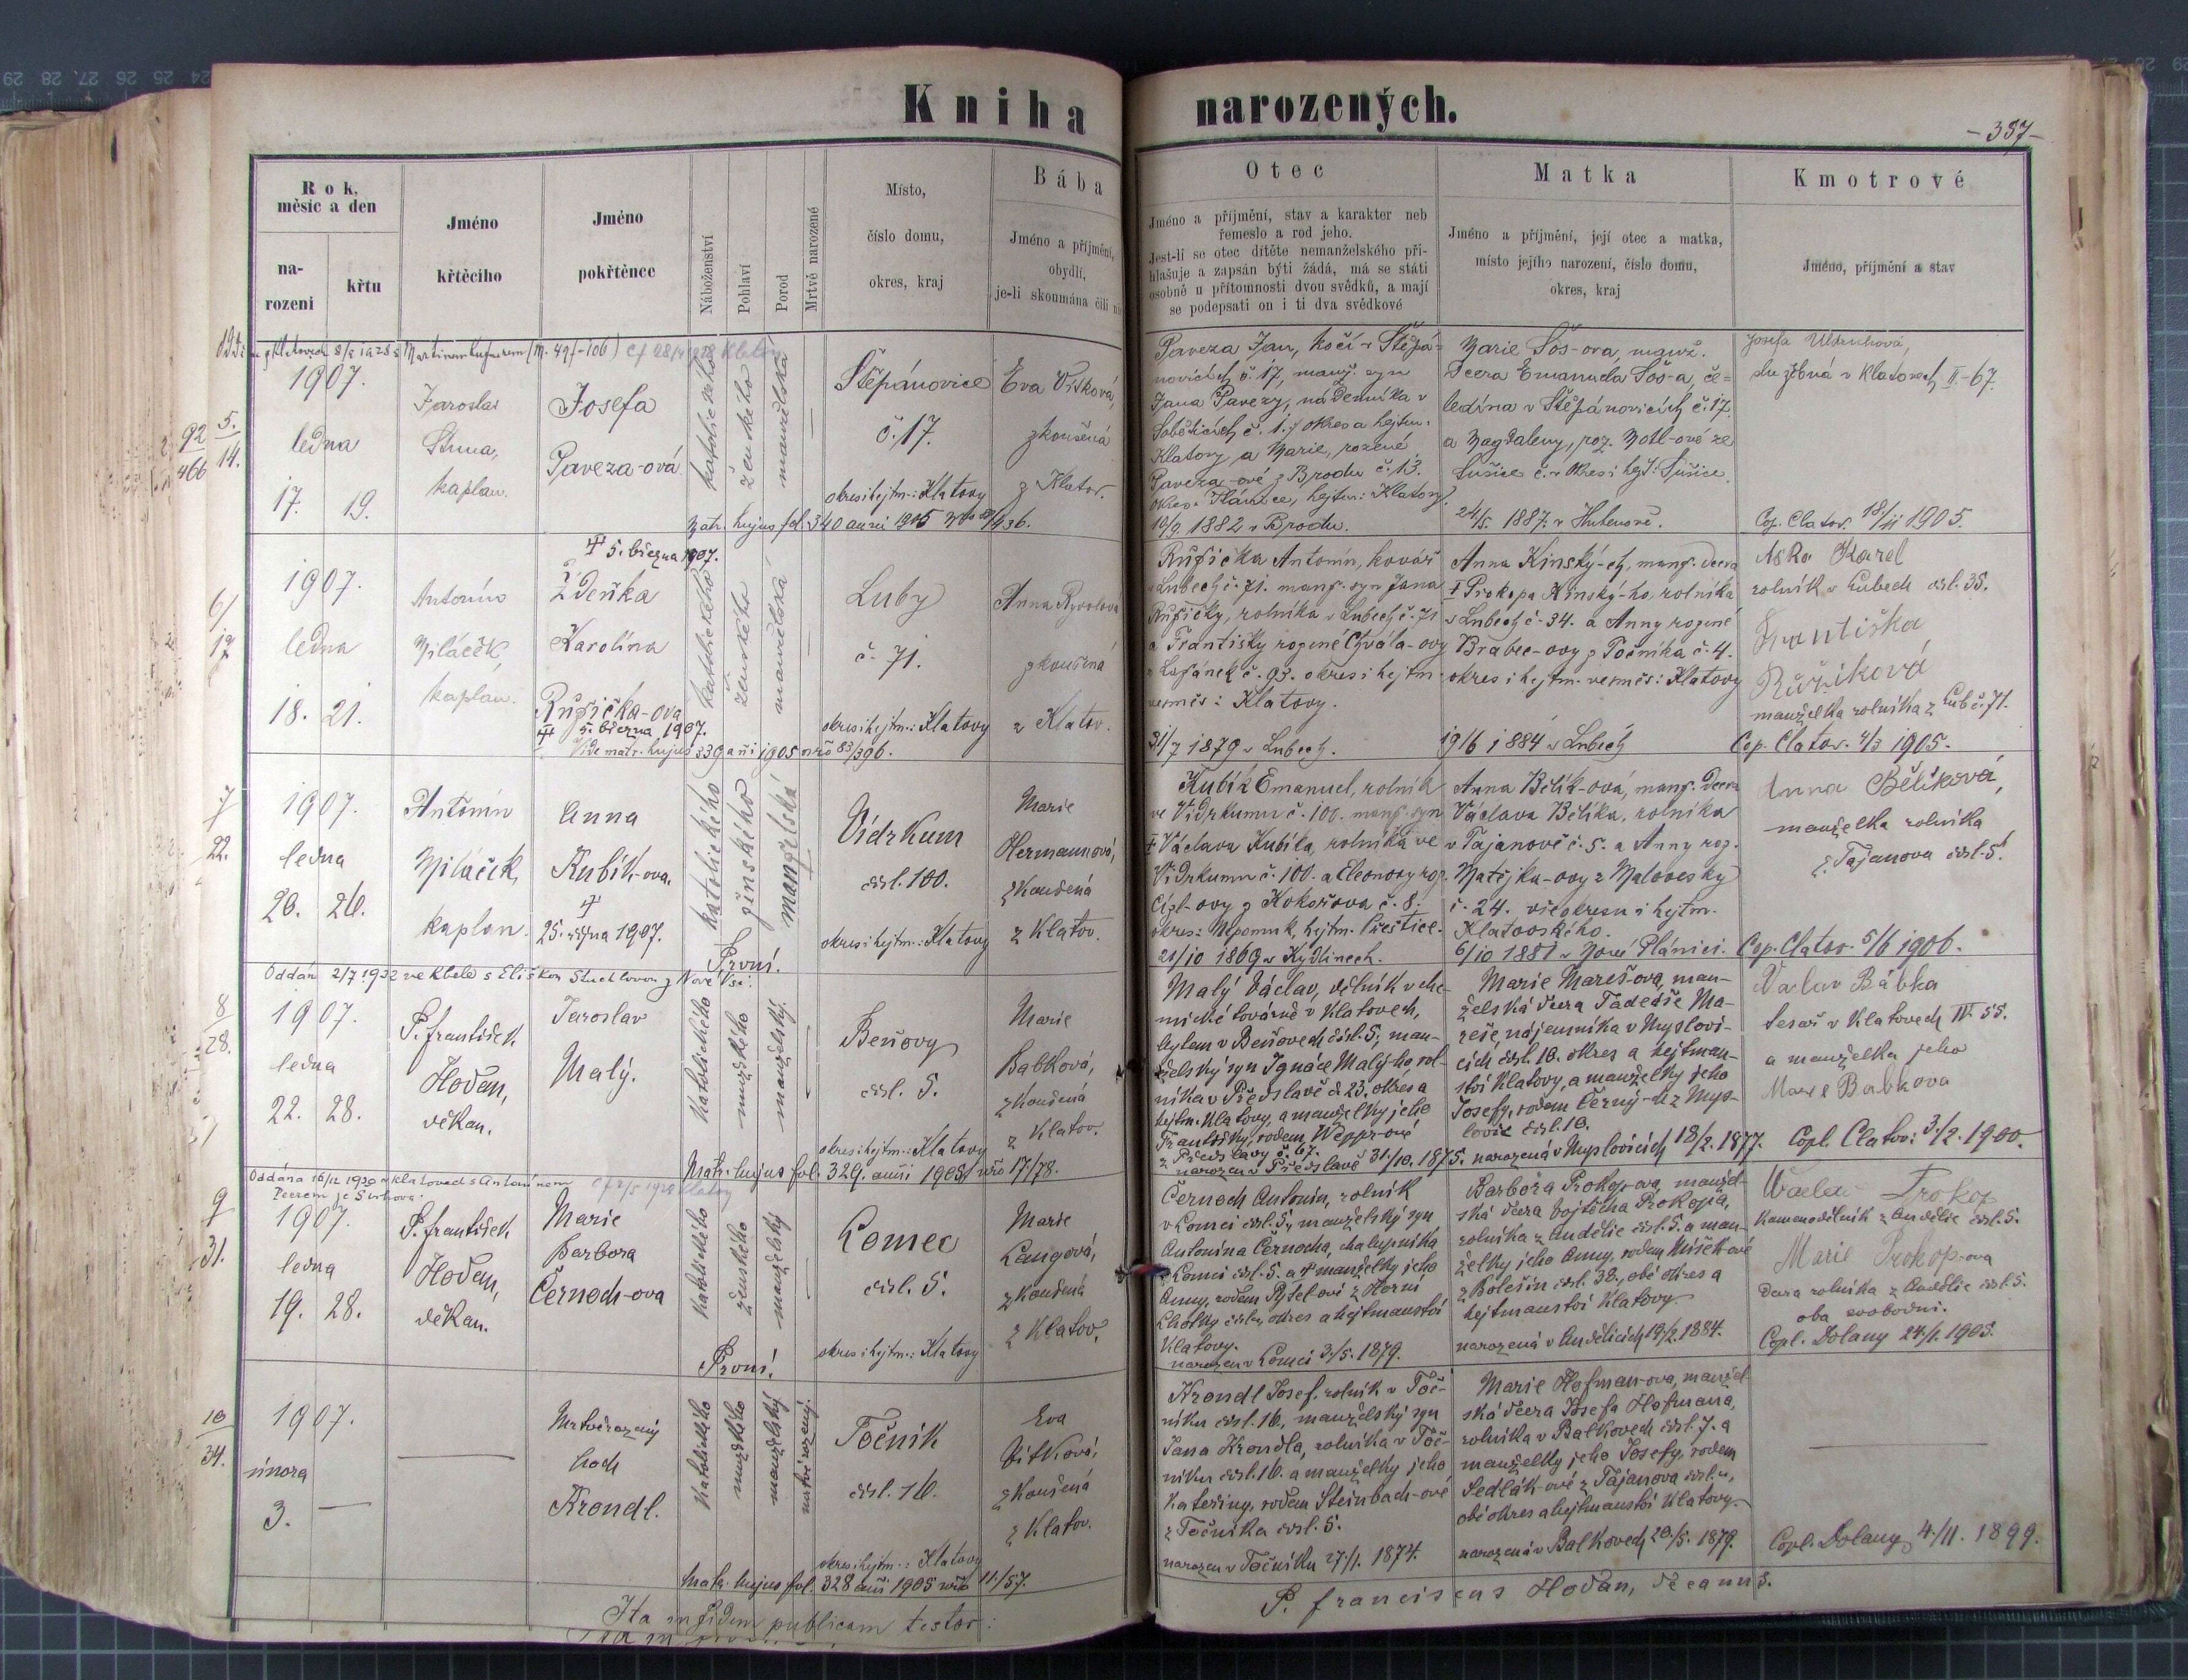 Kniha narozených.
- 357 -
Rok, měsíc a den
na-rozeni
křtu
Jméno křtěcího
Jméno pokřtěnce
Náboženství
Pohlaví
Porod
Mrtvě narozené
Místo,
číslo domu,
okres, kraj
Bába
Jméno a příjmění,
obydlí,
je-li skoumána čili
Otec
Jméno a příjmění, stav a karakter neb
řemeslo a rod jeho.
Jest-li se otec dítěte nemanželského při-
hlašuje a zapsán býti žádá, má se státi
osobně u přítomnosti dvou svědků, a mají
se podepsati on i ti dva svědkové
Matka
Jméno a příjmění, její otec a matka,
místo jejího narození, číslo domu,
okres, kraj
Kmotrové
Jméno, příjmění a stav
5.
14.
1907.
ledna
17. 19.
Jaroslav
kaplan.
Josefa
Paveza-ová
katolického
ženského
manželská
Štěpánovice
č. 17.
okres i hejtm.: Klatovy
Eva
zkoušená
z Klatov.
Paveza Jan, kočí v Štěpá-
novicích č. 17, manž. syn
Jana Pavezy, nádenníka v
Klatovy a Marie, rozené
Paveza-ové z Brodu č. 13.
10/9. 1882 v Brodu.
Marie Šos-ova, manž.
dcera Emanuela Šos-a, če-
ledína v Štěpánovicích č. 17.
a Magdaleny, roz.
Sušice č. v okres i hejt: Sušice.
24/5. 1887. v
Josefa Uldrichová,
služebná v Klatovech II-67.
Cop. Clatov. 18/11 1905.
6/
17
1907.
ledna
18. 21.
Antonín
Miláček,
kaplan.
† 5. března 1907.
Zdeňka
Karolína
Růžička-ova
† 5. března 1907.
Vide matr. hujus 339 ani 1905 nro 83/396.
katolického
ženského
manželská
Luby
č. 71.
okres i hejtm.: Klatovy
Anna Ryvolová
zkoušená
z Klatov.
Růžička Antonín, kovář
v Lubech č. 71. manž. syn Jana
Růžičky, rolníka v Lubech č. 71
a Františky rozené Chvála-ovy
č. 93. okres i hejtm
vesměs: Klatovy.
31/7 1879 v Lubech.
Anna Kinský-ch, manž. dcera
† Prokopa Kinský-ho, rolníka
v Lubech č. 34. a Anny rozené
Brabec-ovy z Točníka č. 4.
okres i hejtm. vesměs: Klatovy
19/6 1884 v Lubech
Karel
rolník v Lubech čísl. 35.
Františka
Růžičková
manželka rolníka z Lub č. 71.
Cop. Clatov. 4/3 1905.
7
22.
1907.
ledna
20. 26.
Antonín
Miláček,
kaplan.
Anna
Kubík-ova.
†
25. srpna 1907.
katolického
ženského
manželská
První.
Vídrkum
čísl. 100.
okres i hejtm.: Klatovy
Marie
Hermannová,
zkoušená
z Klatov.
Kubík Emanuel, rolník
ve Vídrkumu č. 100. manž. syn
† Václava Kubíka, rolníka ve
Vídrkumu č. 100. a Eleonory roz.
Cízl-ovy z Kokořova č. 8.
okres: Nepomuk, hejtm. Přeštice.
21/10 1869 v Kydlinech.
Anna Bělík-ová, manž. dcera
Václava Bělíka, rolníka
v Tajanově č. 5. a Anny roz.
Matějka-ovy z Malovesky
č. 24. vše okresu i hejtm.
Klatovského.
6/10 1881 v Nové Plánici.
Anna Bělíková,
manželka rolníka
z Tajanova čísl. 5.
Cop. Clatov. 5/6 1906.
Oddán 2/7 1932 ve Kbele s Eliškou Stuchlovou z Nové Vsi.
8
28.
1907.
ledna
22. 28.
P. František
Hodan,
děkan.
Jaroslav
Malý.
Katolického
mužského
manželský.
Beňovy
čísl. 5.
okres i hejtm.: Klatovy
Matr. hujus fol. 329. anni 1905 nro 17./78.
Marie
Babková,
zkoušená
z Klatov.
Malý Václav, dělník v che-
mické továrně v Klatovech,
bytem v Beňovech čísl. 5, man-
želský syn Ignáce Malý-ho, rol-
níka v Předslavě č. 23. okres a
hejtm. Klatovy, a manželky jeho
Františky, rodem
z Předslavy č. 67.
narozen v Předslavě 31./10. 1875.
Marie Mareš-ova, man-
želská dcera Tadeáše Ma-
reše, nájemníka v Myslovi-
cích čísl. 10. okres a hejtman-
ství Klatovy, a manželky jeho
Josefy, rodem Černý-ch z Mys-
lovic čísl. 10.
narozená v Myslovicích 18/2. 1877.
Václav Bábka
tesař v Klatovech IV. 55.
a manželka jeho
Marie Babkova
Copl. Clatov: 3./2. 1900.
Oddána 16/11 1930 v Klatovech s Antonínem
9
31.
1907.
ledna
19. 28.
P. František
Hodan,
děkan.
Marie
Barbora
Černoch-ova
Katolického
ženského
manželský
První.
Lomec
čísl. 5.
okres i hejtm.: Klatovy
Marie
Langová,
zkoušená
z Klatov.
Černoch Antonín, rolník
v Lomci čísl. 5, manželský syn
Antonína Černocha, chalupníka
v Lomci čísl. 5. a † manželky jeho
Anny, rodem z Horní
Lhotky čísl. okres a hejtmanství
Klatovy.
narozen v Lomci 3./5. 1879.
Barbora Prokop-ova, manžel-
ská dcera Vojtěcha Prokopa,
rolníka z Andělic čísl. 5. a man-
želky jeho Anny, rodem Míšek-ové
z Bolešin čísl. 38., obé okres a
hejtmanství Klatovy
narozená v Andělicích 19/2. 1884.
Václav Prokop
z Andělic čísl. 5.
Marie Prokop-ova
dcera rolníka z Andělic čísl. 5.
oba svobodní.
Copl. Dolany 24./1. 1905.
10
34.
1907.
února
3. —
Mrtvěrozený
hoch
Krondl.
Katolického
mužského
manželský
mrtvě rozený.
Točník
čísl. 16.
okres i hejtm.: Klatovy
Matr. hujus fol. 328 anni 1905 nro 11./57.
Eva
Vitková,
zkoušená
z Klatov.
Krondl Josef, rolník v Toč-
níku čísl. 16., manželský syn
Jana Krondla, rolníka v Toč-
níku čísl. 16. a manželky jeho
Kateřiny, rodem Steinbach-ové
z Točníka čísl. 5.
narozen v Točníku 27./1. 1874.
Marie Hofman-ova, manžel-
ská dcera Josefa Hofmana,
rolníka v Balkovech čísl. 7. a
manželky jeho Josefy, rodem
Sedlák-ové z Tajanova čísl.
obé okres a hejtmanství Klatovy
narozená v Balkovech 20./5. 1879.
Copl. Dolany 4./11. 1899.
Ita in fidem publicam testor:
P. Franciscus Hodan, decanus.